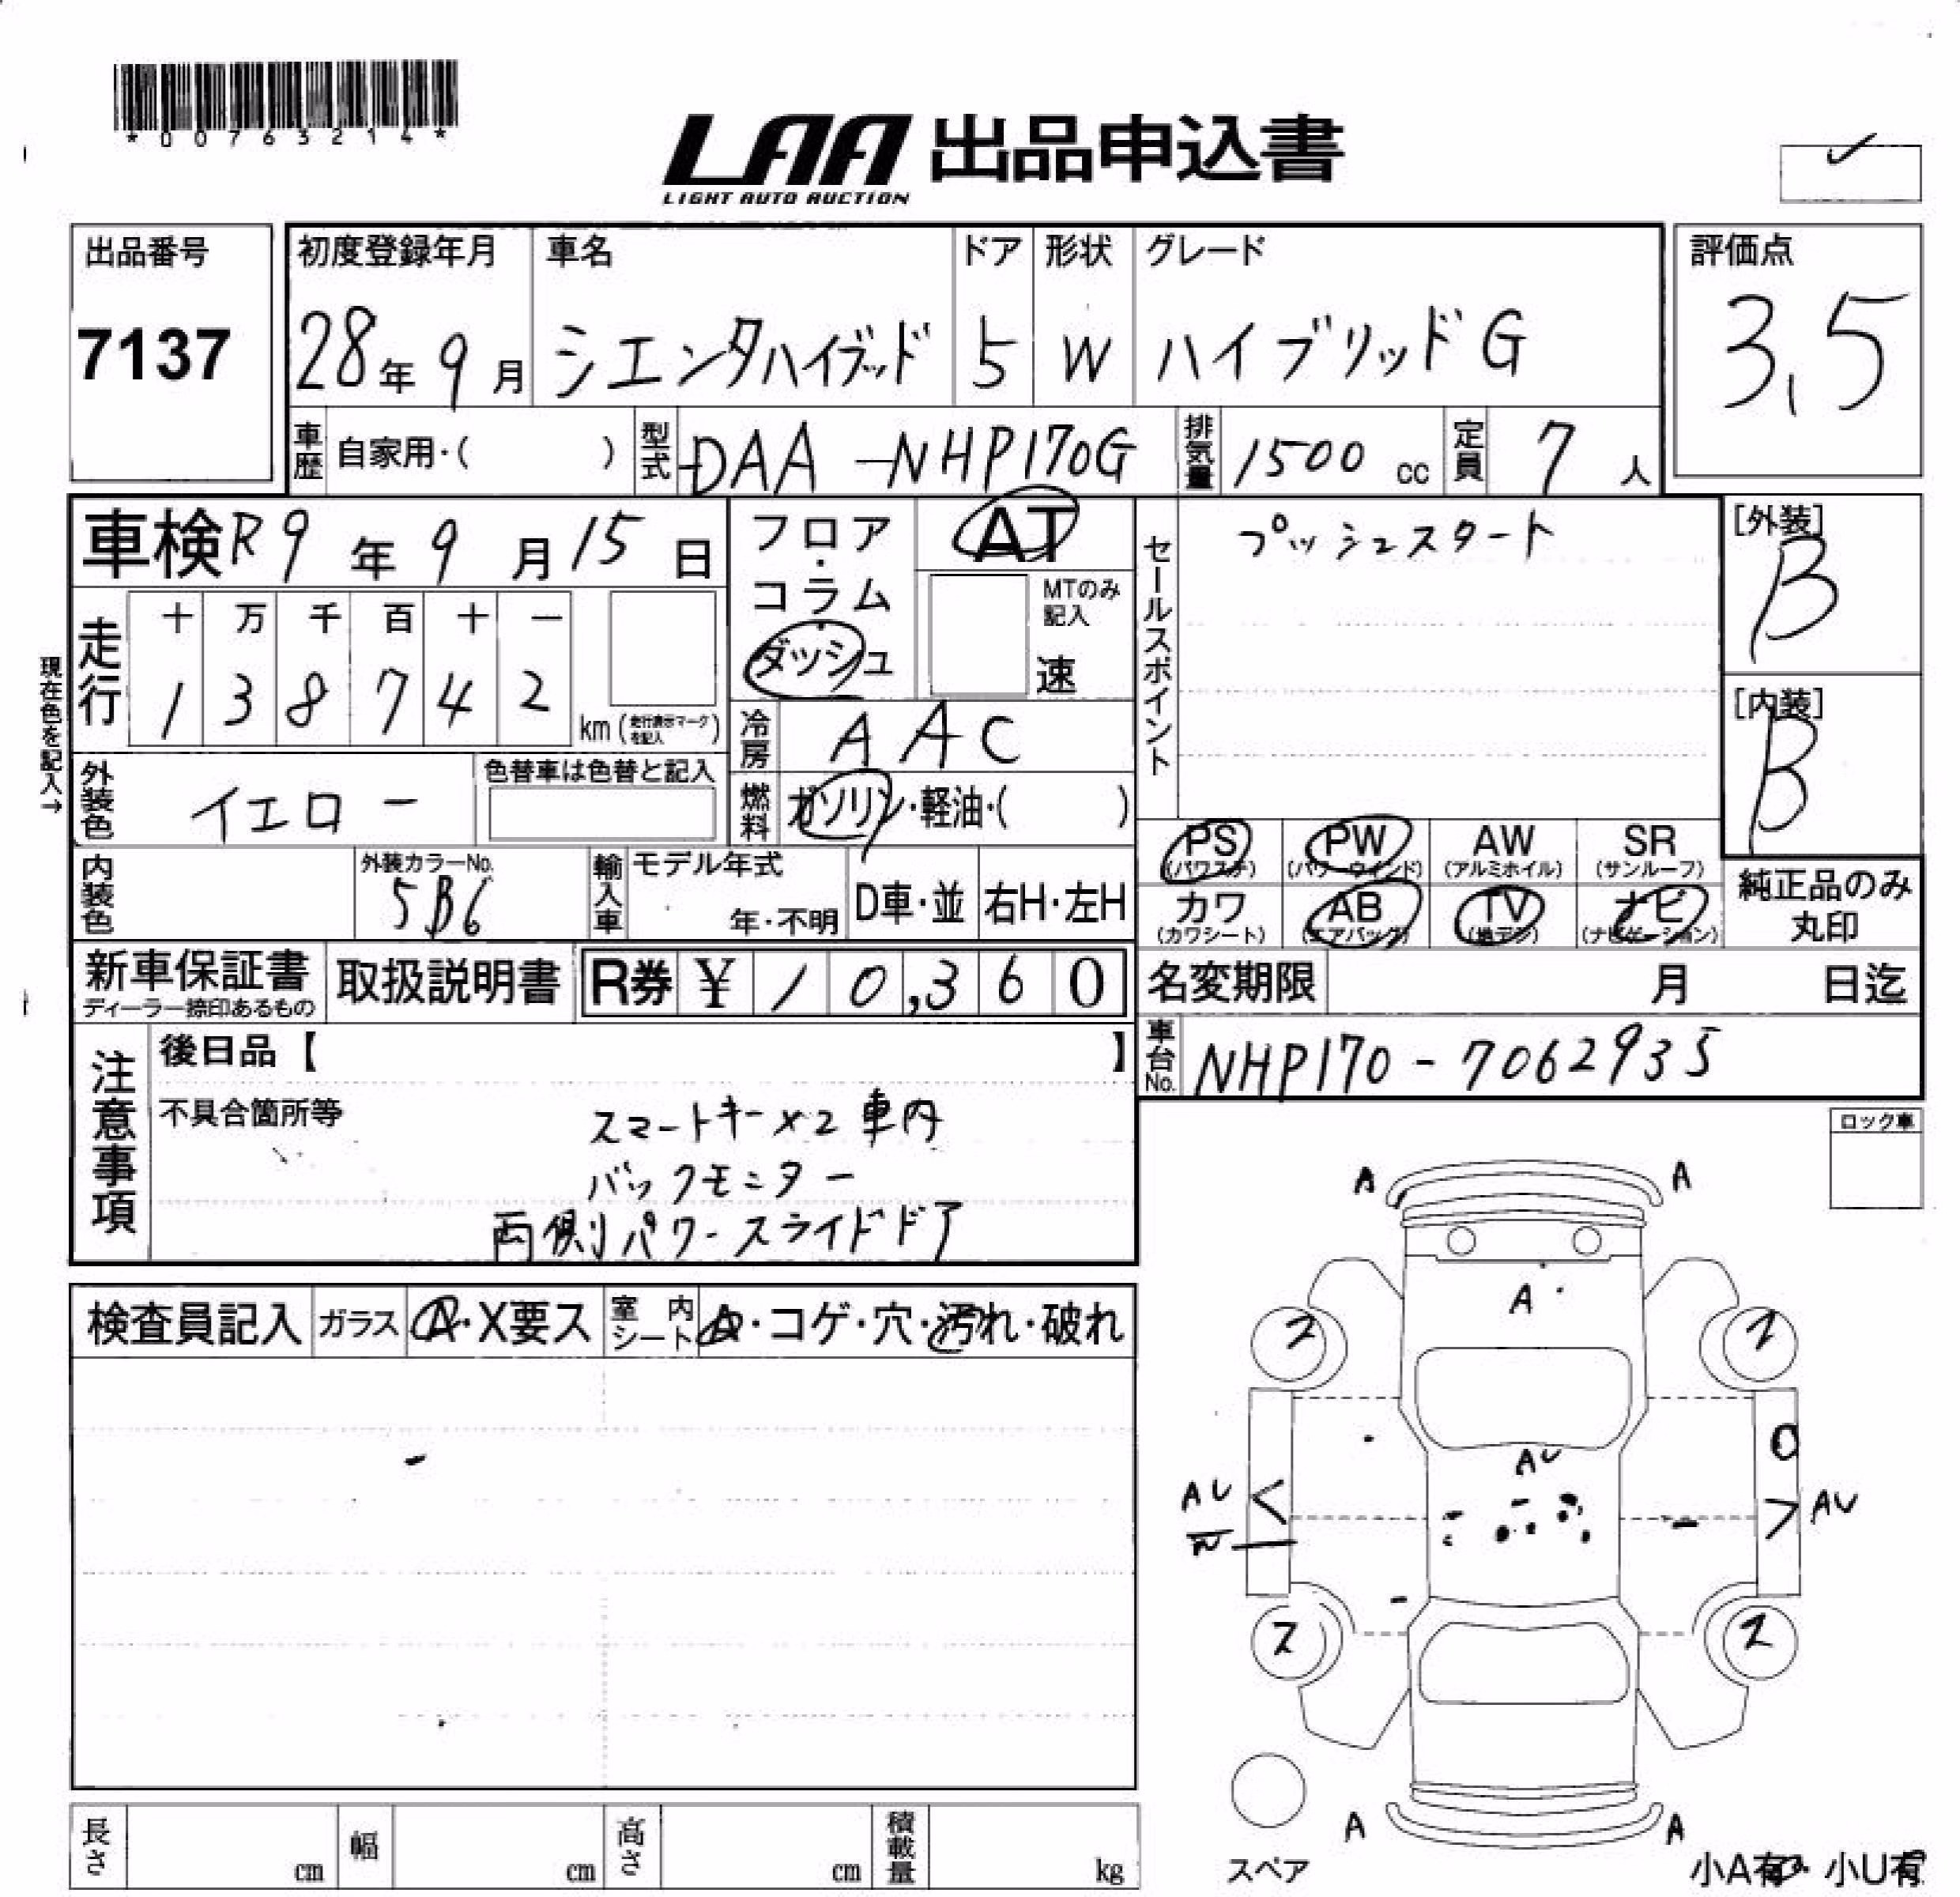 *00763214*
LAA 出品申込書
LIGHT AUTO AUCTION
出品番号
7137
初度登録年月
28年 9月
車名
シエンタハイブッド
ドア
5
形状
W
グレード
ハイブリッドG
評価点
3.5
車歴 自家用・( )
型式 DAA-NHP170G
排気量 1500 cc
定員 7 人
車検 R9年 9月 15日
走行
十 万 千 百 十 一
1 3 8 7 4 2
km (走行表示マークを記入)
現在色を記入→
外装色 イエロー
色替車は色替と記入
内装色
外装カラーNo.
5B6
フロア・コラム
ダッシュ
AT
MTのみ記入
速
冷房 AAC
燃料 ガソリン・軽油・( )
輸入車
モデル年式
年・不明
D車・並
右H・左H
セールスポイント
プッシュスタート
[外装]
B
[内装]
B
PS (パワステ)
PW (パワーウインド)
AW (アルミホイル)
SR (サンルーフ)
カワ (カワシート)
AB (エアバッグ)
TV (地デジ)
ナビ (ナビゲーション)
純正品のみ丸印
新車保証書
ディーラー捺印あるもの
取扱説明書
R券 ¥ 10,360
名変期限 月 日迄
車台No. NHP170-7062935
注意事項
後日品【 】
不具合箇所等
スマートキー×2 車内
バックモニター
両側パワースライドドア
ロック車
検査員記入
ガラス A・X要ス
室内シート A・コゲ・穴・汚れ・破れ
A A
A
AU
AU
AU
A A
スペア
小A有 小U有
長さ cm
幅 cm
高さ cm
積載量 kg